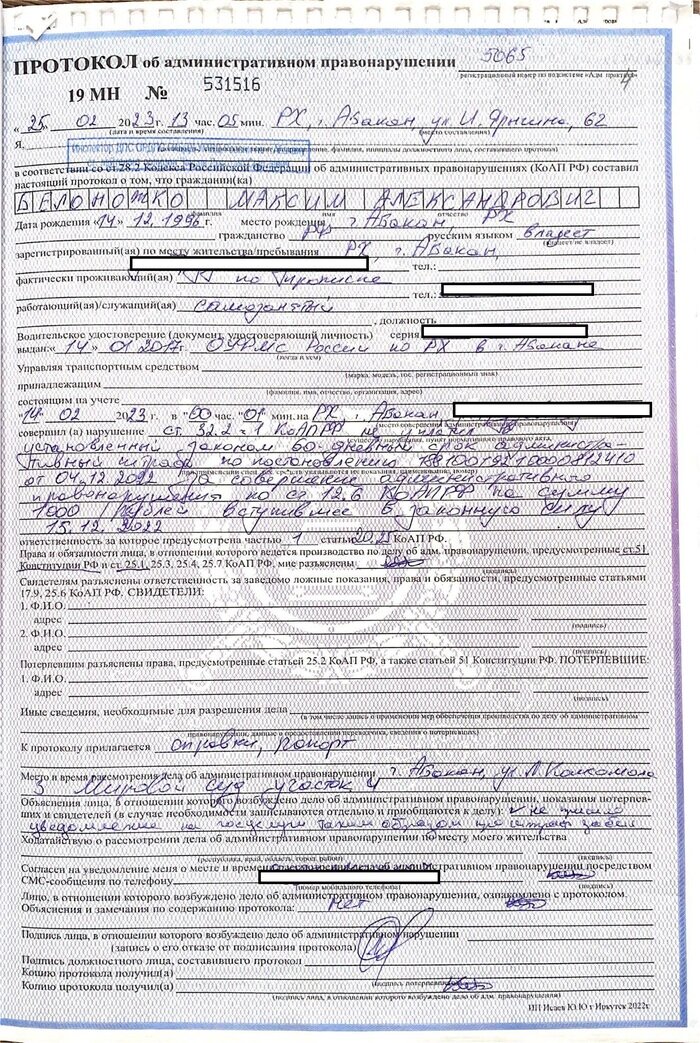 5065
ПРОТОКОЛ об административном правонарушении
регистрационный номер по подсистеме «Адм. практика»
4
19 МН № 531516
« 25 » 02 2023 г. 13 час. 05 мин. РХ, г. Абакан, ул. И. Ярыгина, 62
(дата и время составления) (место составления)
Я,
Инспектор ДПС
фамилия, инициалы должностного лица, составившего протокол)
в соответствии со ст.28.2 Кодекса Российской Федерации об административных правонарушениях (КоАП РФ) составил
настоящий протокол о том, что гражданин(ка)
БЕЛОНОЖКО МАКСИМ АЛЕКСАНДРОВИЧ
фамилия имя отчество
Дата рождения «14» 12. 1996 г. место рождения г. Абакан РХ
гражданство РФ русским языком владеет
(владеет/не владеет)
зарегистрированный(ая) по месту жительства/пребывания РХ, г. Абакан,
тел.:
фактически проживающий(ая) по прописке
тел.:
работающий(ая)/служащий(ая) самозанятый
, должность
Водительское удостоверение (документ, удостоверяющий личность) серия
выдан: «14» 01 2017 г. ОУФМС России по РХ в г. Абакане
(когда и кем)
Управляя транспортным средством
(марка, модель, гос. регистрационный знак)
принадлежащим
(фамилия, имя, отчество, организация, адрес)
состоящим на учете
14 02 2023 г. в "00 час. "01 мин. на РХ, г. Абакан,
(место совершения административного правонарушения)
совершил (а) нарушение ст. 32.2 ч 1 КоАП РФ не уплатил в
установленный законом 60-дневный срок администра-
тивный штраф по постановлению
от 04.12.2022 за совершение административного
правонарушения по ст. 12.6 КоАП РФ на сумму
1000 рублей вступившее в законную силу
15.12.2022
ответственность за которое предусмотрена частью 1 статьи 20.25 КоАП РФ.
Права и обязанности лица, в отношении которого ведется производство по делу об адм. правонарушении, предусмотренные ст.51
Конституции РФ и ст. 25.1, 25.3, 25.4, 25.7 КоАП РФ, мне разъяснены
(подпись)
Свидетелям разъяснены ответственность за заведомо ложные показания, права и обязанности, предусмотренные статьями
17.9, 25.6 КоАП РФ. СВИДЕТЕЛИ:
1. Ф.И.О.
адрес
(подпись)
2. Ф.И.О.
адрес
(подпись)
Потерпевшим разъяснены права, предусмотренные статьей 25.2 КоАП РФ, а также статьей 51 Конституции РФ. ПОТЕРПЕВШИЕ:
1. Ф.И.О.
адрес
(подпись)
Иные сведения, необходимые для разрешения дела
(в том числе запись о применении мер обеспечения производства по делу об административном
правонарушении, данные о предоставлении переводчика, сведения о потерпевших)
К протоколу прилагается справки, рапорт
Место и время рассмотрения дела об административном правонарушении г. Абакан, ул. Л. Комсомола
3 Мировой суд участок 4
Объяснения лица, в отношении которого возбуждено дело об административном правонарушении, показания потерпев-
ших и свидетелей (в случае необходимости записываются отдельно и приобщаются к делу): не пришло
уведомление на госуслуги таким образом про штраф забыл
Ходатайствую о рассмотрении дела об административном правонарушении по месту моего жительства
(республика, край, область, город, район) (подпись)
Согласен на уведомление меня о месте и времени административном правонарушении посредством
СМС-сообщения по телефону
(номер мобильного телефона) (подпись)
Лицо, в отношении которого возбуждено дело об административном правонарушении, ознакомлено с протоколом.
Объяснения и замечания по содержанию протокола: нет
(подпись)
Подпись лица, в отношении которого возбуждено дело об административном правонарушении
(запись о его отказе от подписания протокола)
Подпись должностного лица, составившего протокол
Копию протокола получил(а)
(подпись потерпевшего)
Копию протокола получил(а)
(подпись лица, в отношении которого возбуждено дело об адм. правонарушении)
ИП Исаев Ю.Ю г Иркутск 2022г.